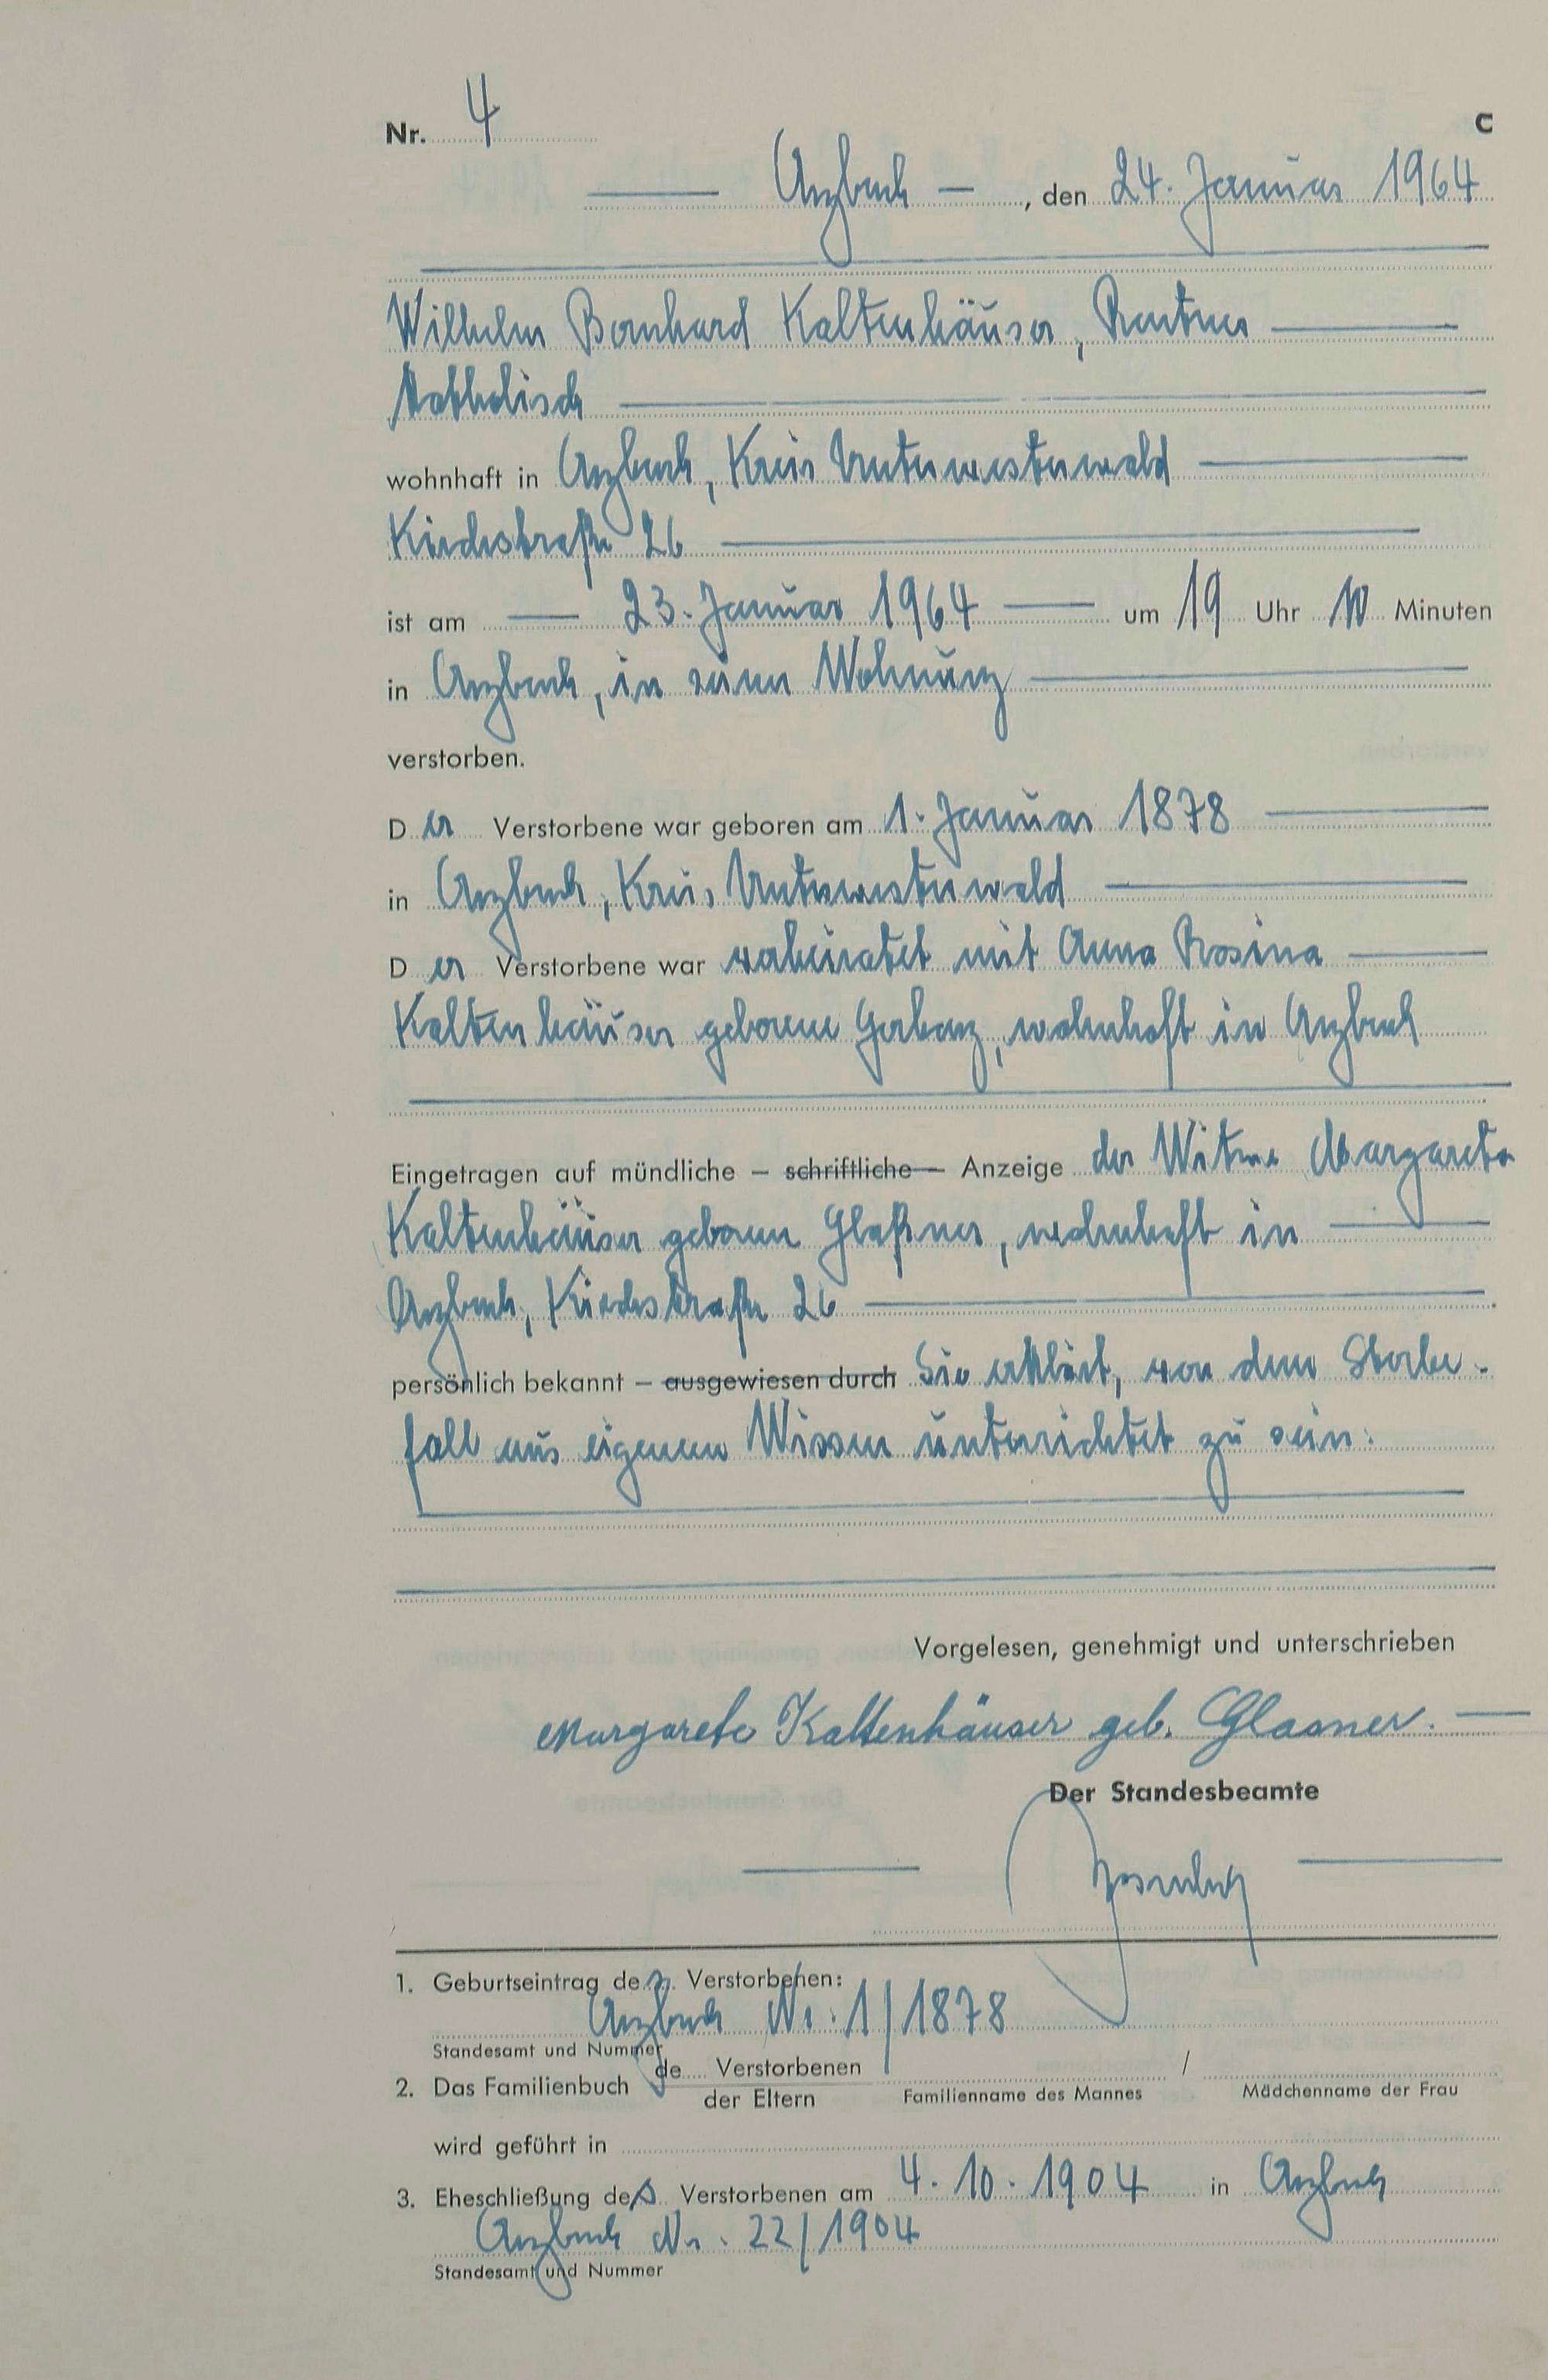 Nr. 4
C
Arzbach, den 24. Januar 1964
Wilhelm Bernhard Kaltenhäuser, Rentner
Katholisch
wohnhaft in Arzbach, Kreis Unterwesterwald
Kirchstraße 26
ist am 23. Januar 1964 um 19 Uhr 10 Minuten
in Arzbach, in seiner Wohnung
verstorben.
Der Verstorbene war geboren am 1. Januar 1878
in Arzbach, Kreis Unterwesterwald
Der Verstorbene war verheiratet mit Anna Rosina
Kaltenhäuser geborene Gerharz, wohnhaft in Arzbach
Eingetragen auf mündliche – schriftliche – Anzeige der Witwe Margareta
Kaltenhäuser geborene Glaßner, wohnhaft in
Arzbach, Kirchstraße 26
persönlich bekannt – ausgewiesen durch Sie erklärt, von dem Sterbe-
fall aus eigenem Wissen unterrichtet zu sein.
Vorgelesen, genehmigt und unterschrieben
Margarete Kaltenhäuser geb. Glasner.
Der Standesbeamte
1. Geburtseintrag des Verstorbenen:
Arzbach Nr. 1/1878
Standesamt und Nummer
2. Das Familienbuch de Verstorbenen /
der Eltern Familienname des Mannes Mädchenname der Frau
wird geführt in
3. Eheschließung des Verstorbenen am 4.10.1904 in Arzbach
Arzbach Nr. 22/1904
Standesamt und Nummer